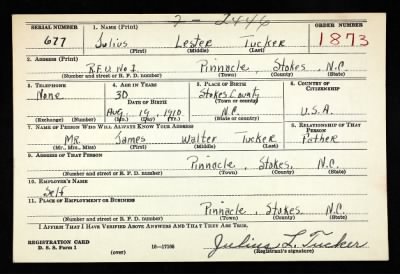 2-2446
SERIAL NUMBER 1. NAME (Print) ORDER NUMBER
677 Julius Lester Tucker 1873
(First) (Middle) (Last)
2. ADDRESS (Print)
R.F.D. No 1. Pinnacle, Stokes N.C.
(Number and street or R. F. D. number) (Town) (County) (State)
3. TELEPHONE 4. AGE IN YEARS 5. PLACE OF BIRTH 6. COUNTRY OF CITIZENSHIP
None 30 Stokes County
DATE OF BIRTH (Town or county)
Aug. 19, 1910 N.C. U.S.A.
(Exchange) (Number) (Mo.) (Day) (Yr.) (State or country)
7. NAME OF PERSON WHO WILL ALWAYS KNOW YOUR ADDRESS 8. RELATIONSHIP OF THAT PERSON
Mr. James Walter Tucker Father
(Mr., Mrs., Miss) (First) (Middle) (Last)
9. ADDRESS OF THAT PERSON
Pinnacle, Stokes, N.C.
(Number and street or R. F. D. number) (Town) (County) (State)
10. EMPLOYER'S NAME
Self
11. PLACE OF EMPLOYMENT OR BUSINESS
Pinnacle, Stokes, N.C.
(Number and street or R. F. D. number) (Town) (County) (State)
I AFFIRM THAT I HAVE VERIFIED ABOVE ANSWERS AND THAT THEY ARE TRUE.
REGISTRATION CARD
D. S. S. Form 1 (over) 16—17105 Julius L. Tucker
(Registrant's signature)